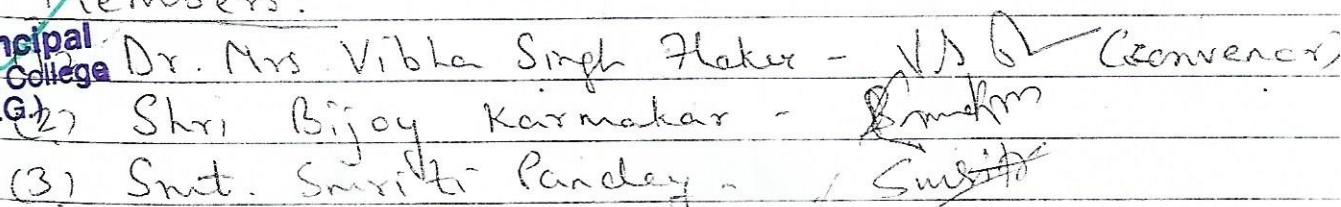 Members.
ncipal
College
G.)
Dr. Mrs. Vibha Singh Thaker - (Convenor)
(2) Shri Bijoy Karmakar -
(3) Smt. Smriti Pandey -